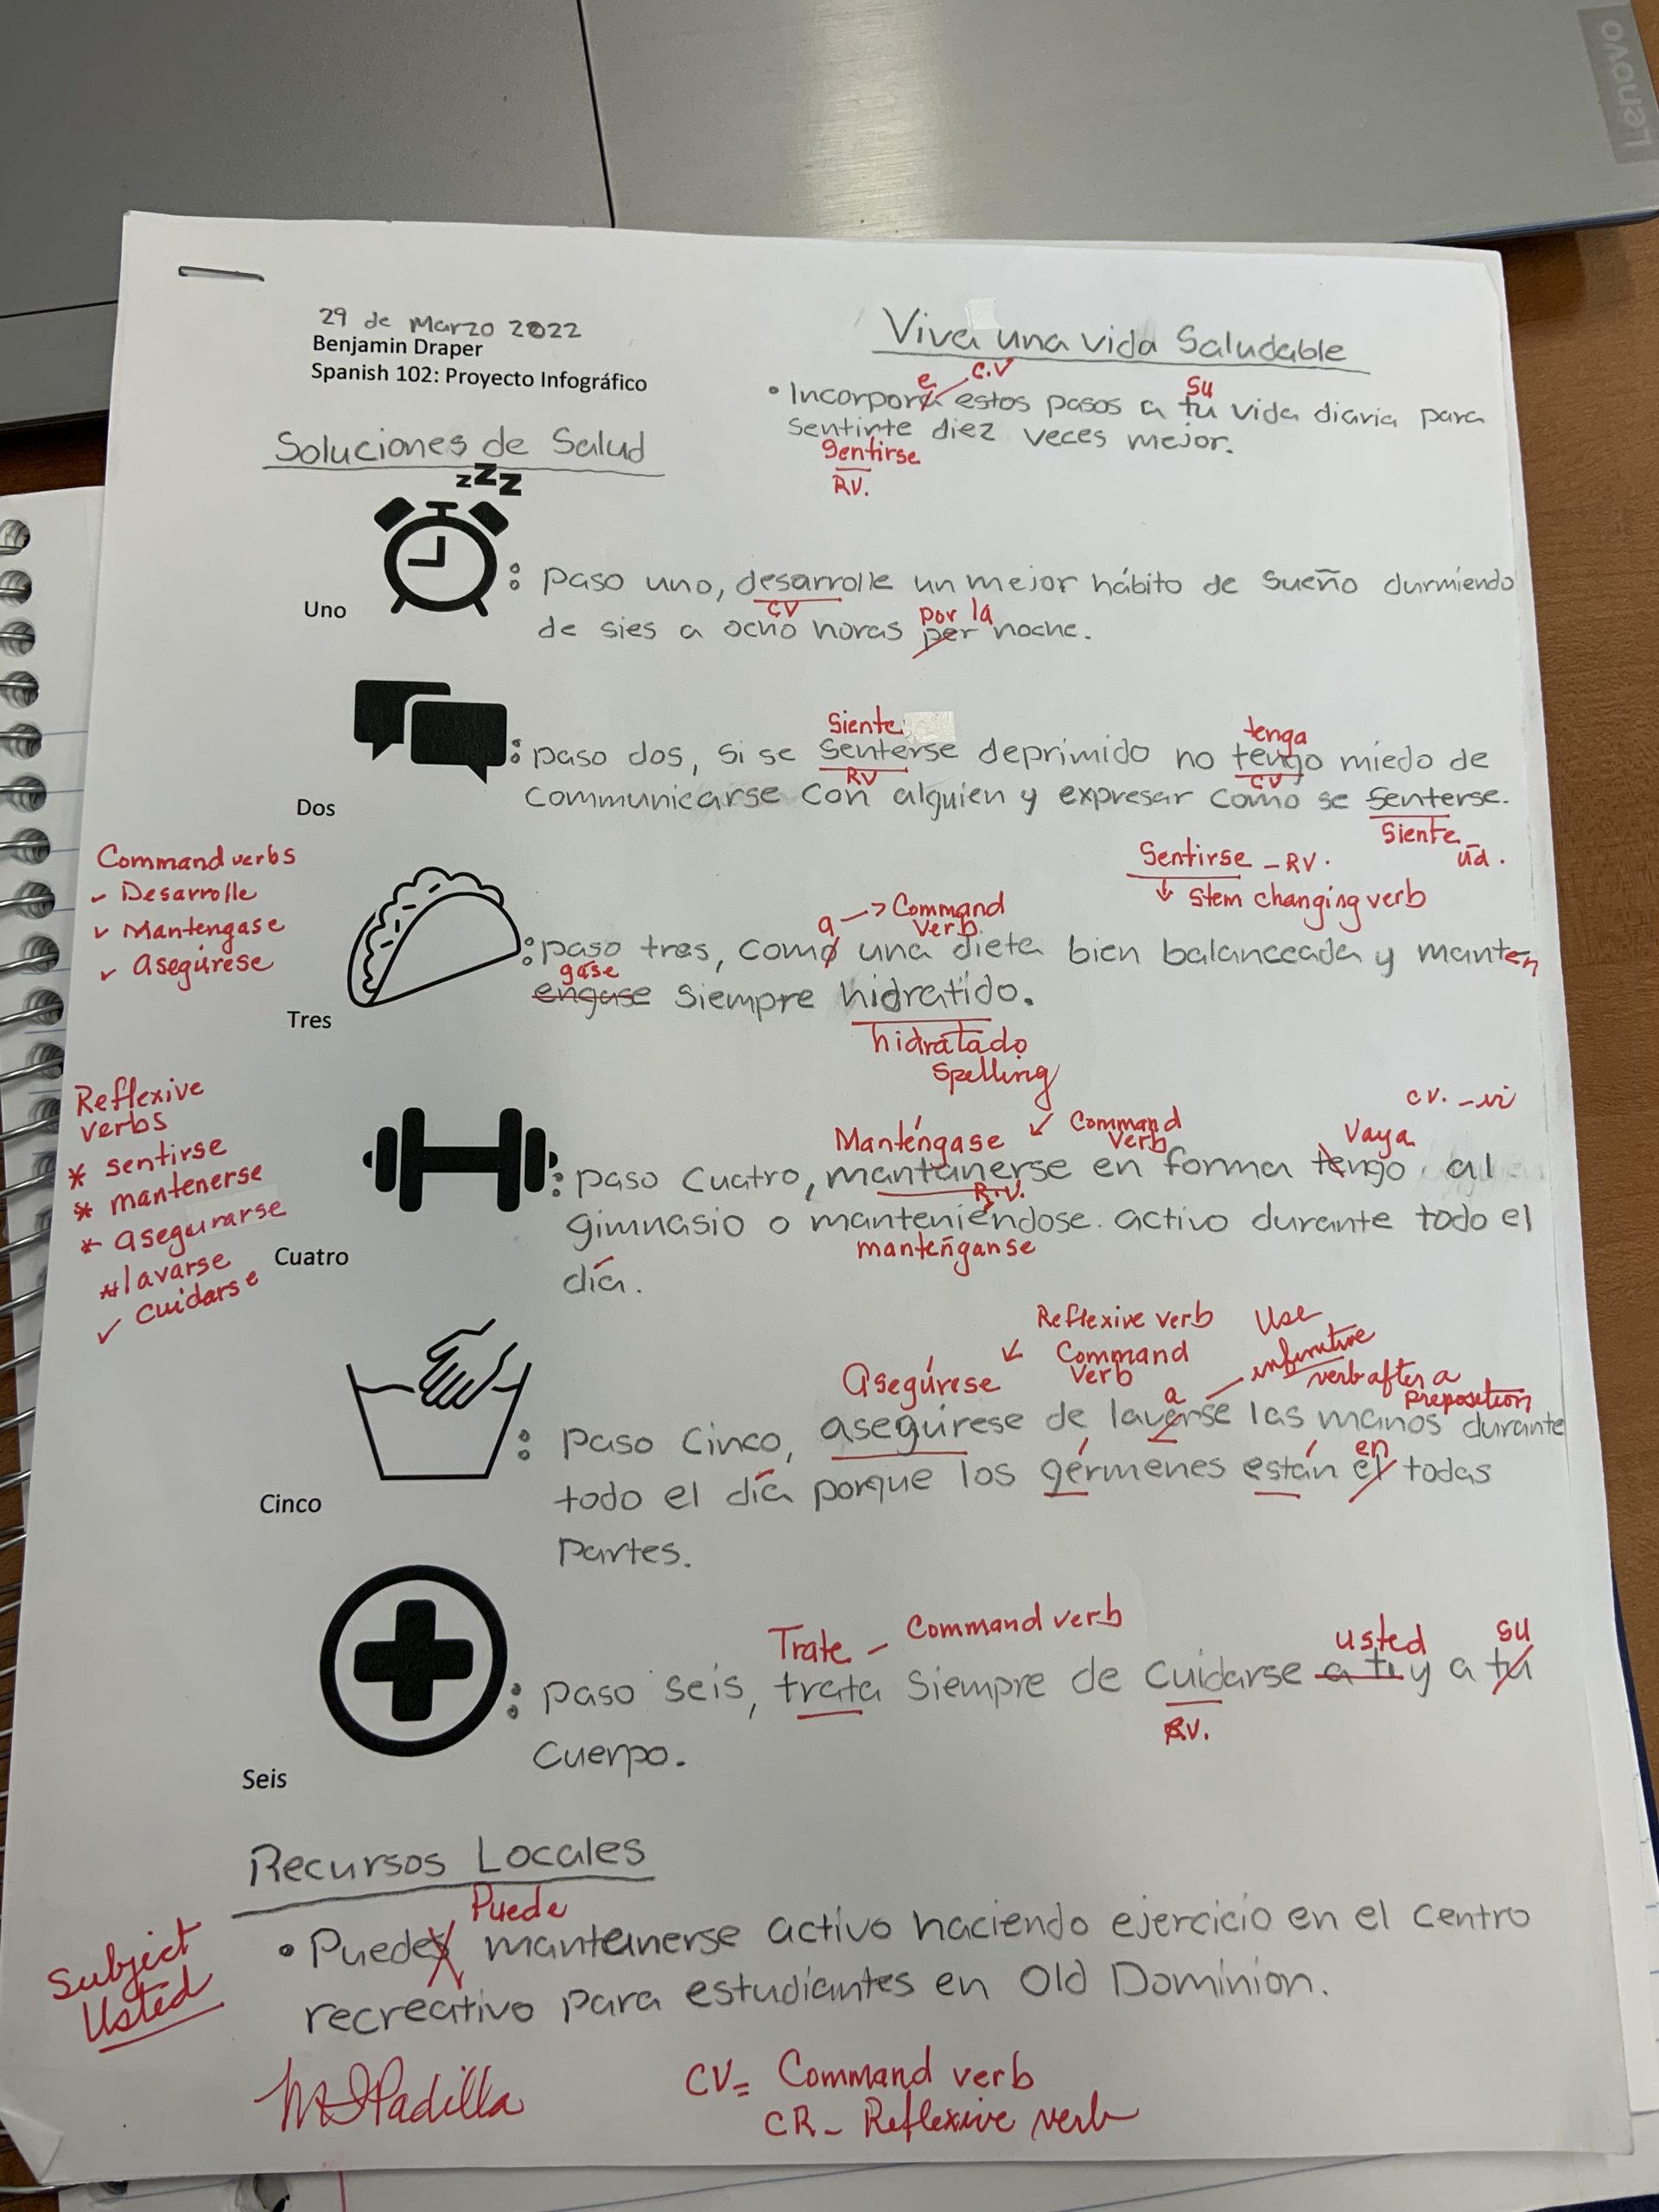 Lenovo
29 de Marzo 2022
Benjamin Draper
Spanish 102: Proyecto Infográfico
Viva una vida Saludable
e C.V su
• Incorpora estos pasos a tu vida diaria para
sentirte diez veces mejor.
Sentirse
RV.
Soluciones de Salud
zZZ
Uno
: paso uno, desarrolle un mejor hábito de sueño durmiendo
CV por la
de sies a ocho horas per noche.
Siente tenga
Dos
: paso dos, si se senterse deprimido no tengo miedo de
RV CV
communicarse con alguien y expresar como se senterse.
Siente ud.
Sentirse - RV.
↓ stem changing verb
Command verbs
✓ Desarrolle
✓ Mantengase
✓ asegúrese
a → Command
verb
Tres
: paso tres, como una dieta bien balanceada y manten
gase
engase siempre hidratido.
hidratado
spelling
Reflexive
verbs
* sentirse
* mantenerse
* asegurarse
* lavarse
✓ cuidarse
cv. - ir
Manténgase ↙ Command
verb
Vaya
Cuatro
: paso Cuatro, mantanerse en forma tengo al
R.V.
gimnasio o manteniéndose activo durante todo el
manténganse
día.
Reflexive verb
Asegúrese ↙ Command
verb
Use
infinitive
verb after a
preposition
a
Cinco
: paso Cinco, asegúrese de laverse las manos durante
en
todo el día porque los gérmenes están el todas
partes.
Trate - Command verb
usted su
Seis
: paso seis, trata siempre de cuidarse a ti y a tu
RV.
cuerpo.
Recursos Locales
Puede
• Puedes mantanerse activo haciendo ejercicio en el centro
recreativo para estudiantes en Old Dominion.
Subject
Usted
Padilla
CV= Command verb
CR- Reflexive verb